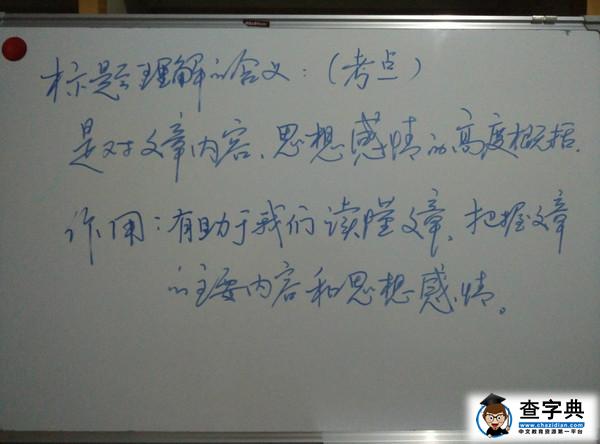 标题理解的含义：（考点）
是对文章内容、思想感情的高度概括.
作用：有助于我们读懂文章、把握文章
的主要内容和思想感情。
查字典
www.chazidian.com
中文教育资源第一平台